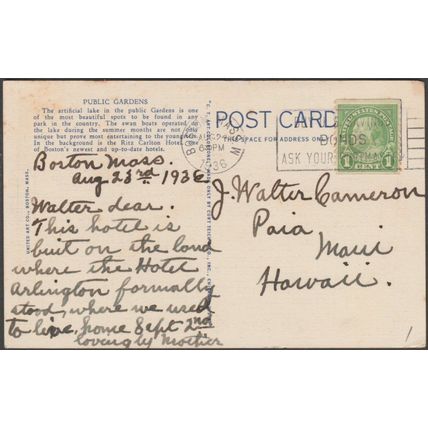 PUBLIC GARDENS
The artificial lake in the public Gardens is one
of the most beautiful spots to be found in any
park in the country. The swan boats operated on
the lake during the summer months are not only
unique but prove most entertaining to the young
In the background is the Ritz Carlton Hotel
of Boston's newest and up-to-date hotels.
Boston Mass.
Aug 23rd 1936
Walter dear.
This hotel is
buit on the land
where the Hotel
Arlington formally
stood, where we used
to live. home Sept 2nd
lovingly Mother
UNITED ART CO., BOSTON, MASS.
POST CARD
SPACE FOR ADDRESS ONLY
BOS
PM
1936
BONDS
ASK YOUR
UNITED STATES POSTAGE
1 CENT 1
J. Walter Cameron
Paia
Maui
Hawaii.
1